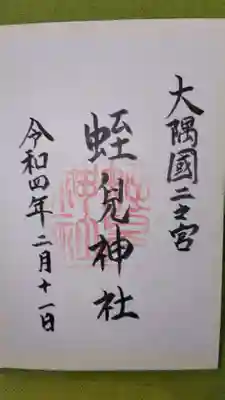 大隅國二之宮
蛭兒神社
令和四年 二月十一日